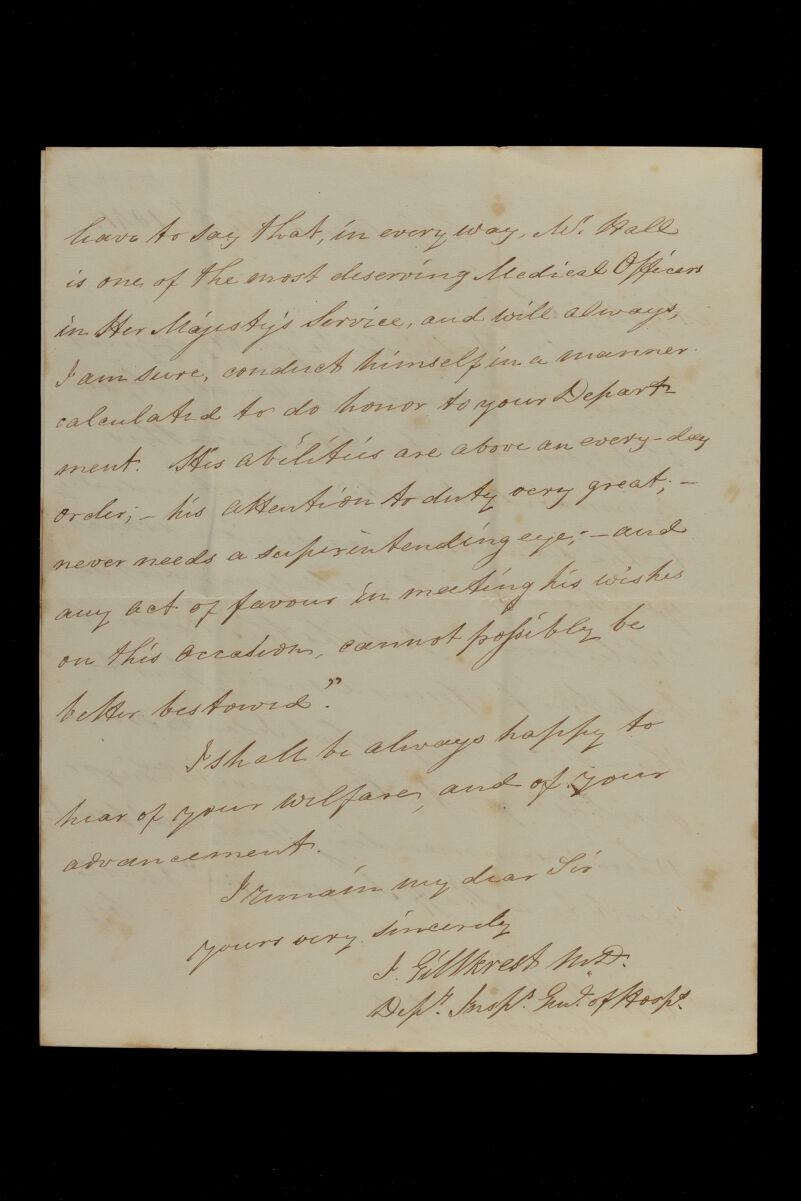 leave to say that, in every way, Mr. Hall
is one of the most deserving Medical Officers
in Her Majesty's Service, and will always,
I am sure, conduct himself in a manner
calculated to do honor to your Depart-
ment. His abilities are above an every-day
order; – his attention to duty very great; –
never needs a superintending eye; – and
any act of favour in meeting his wishes
on this occasion, cannot possibly be
better bestowed".
I shall be always happy to
hear of your welfare, and of your
advancement.
I remain my dear Sir
yours very sincerely
J. Gillkrest M.D.
Depy. Inspr. Genl. of Hospl.